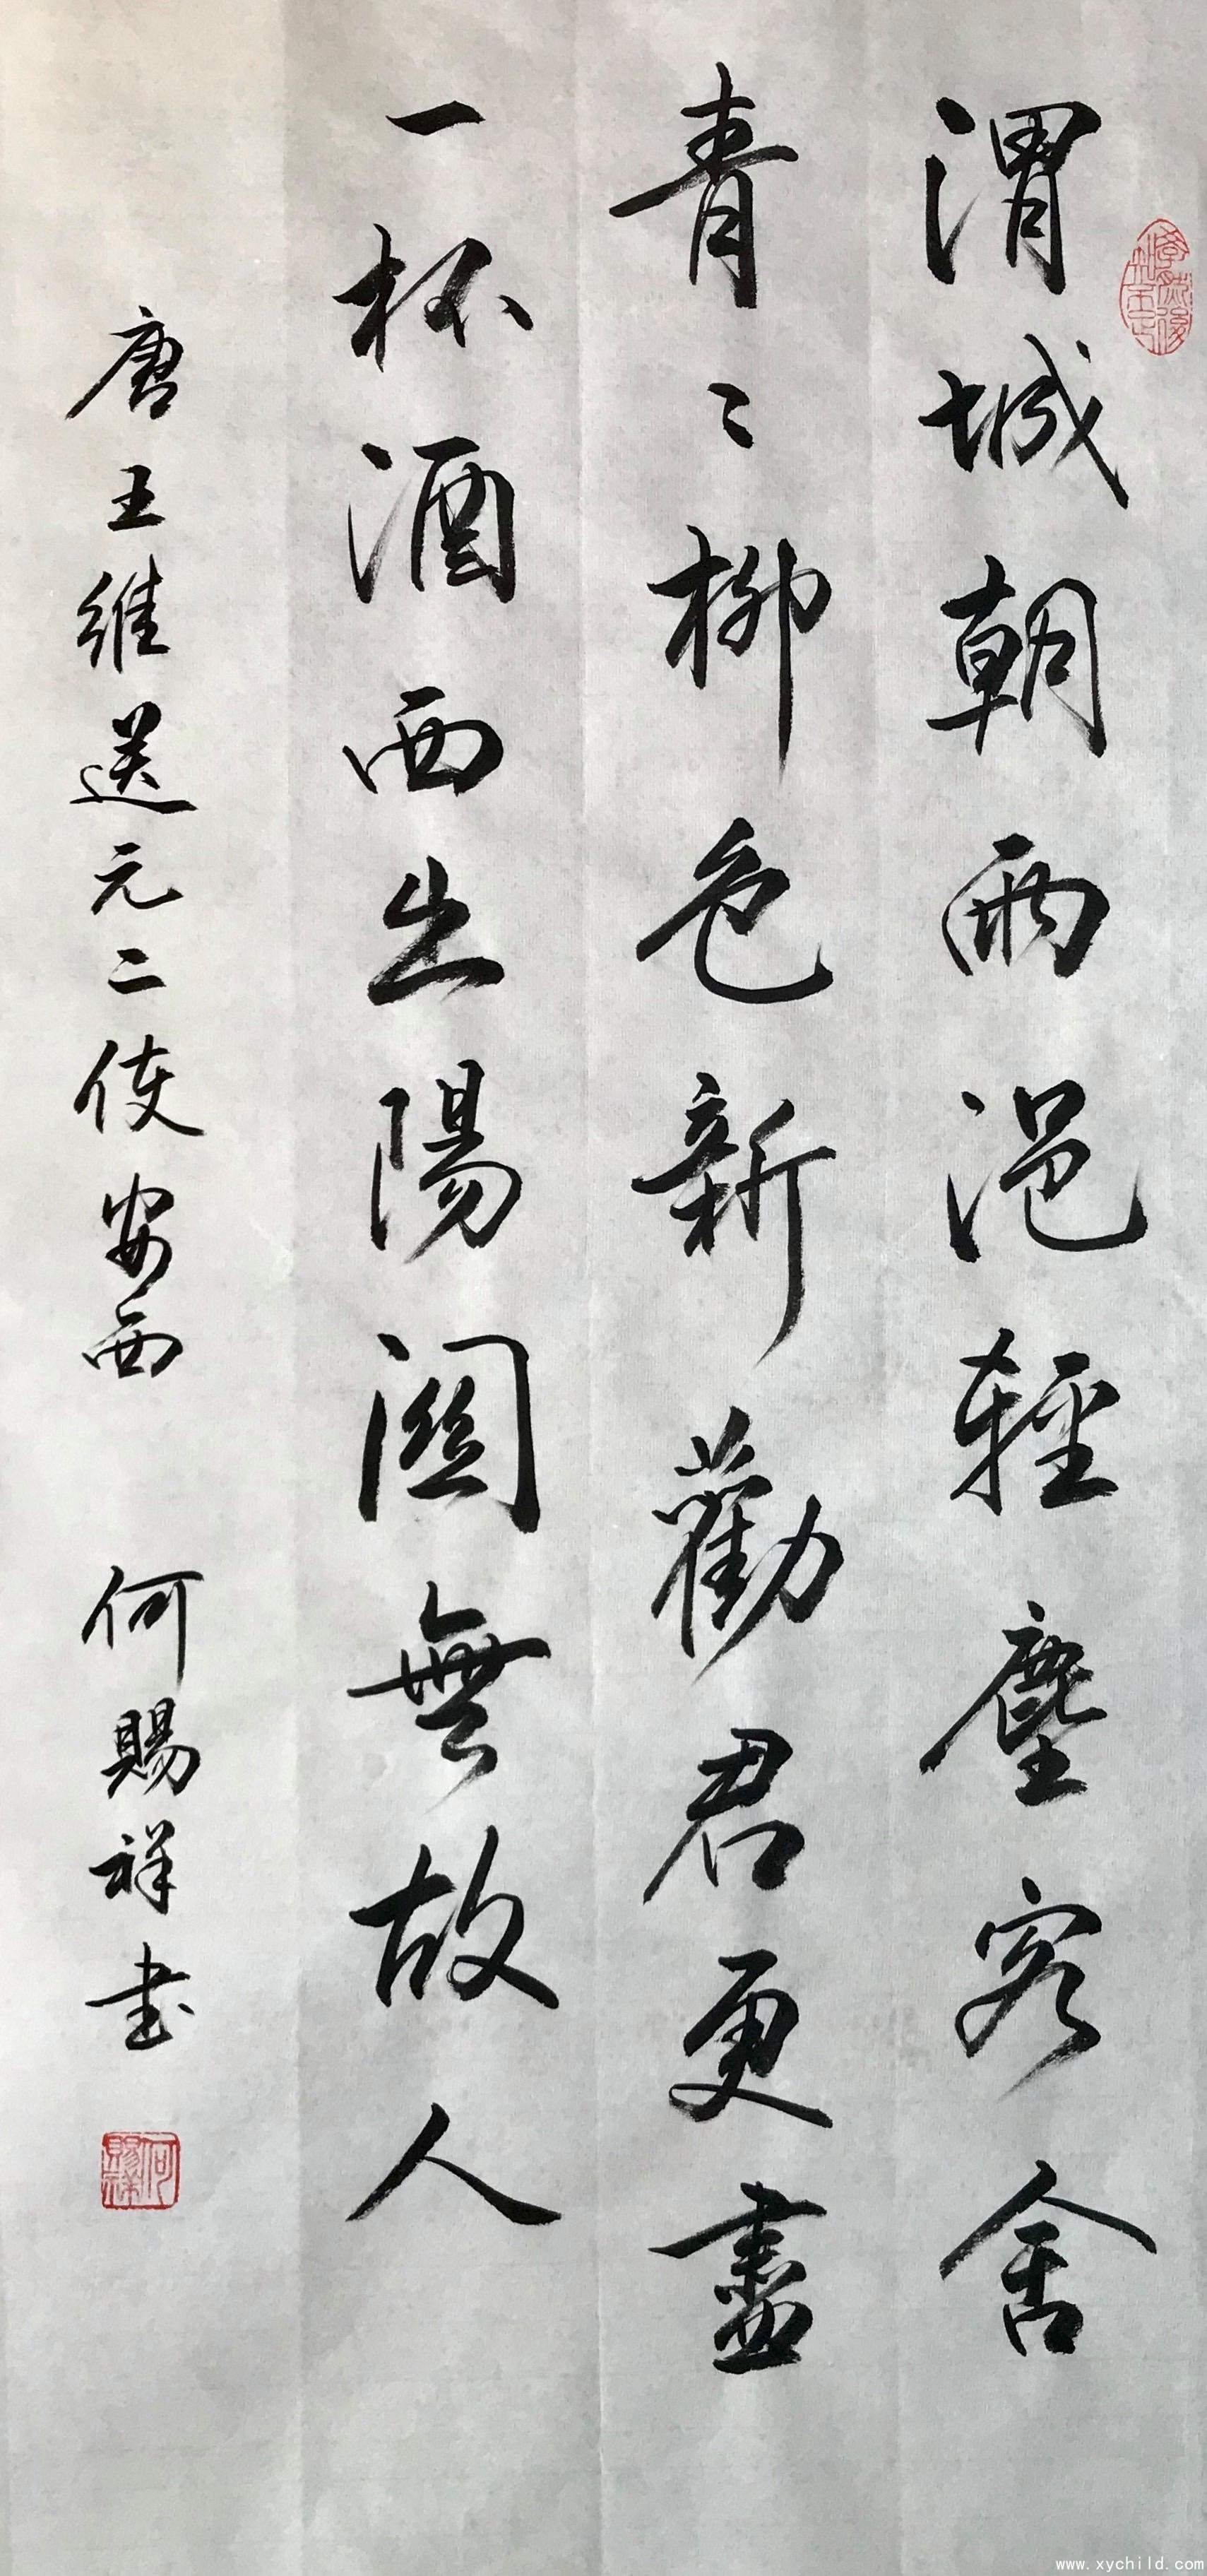 渭城朝雨浥輕塵客舍
青〻柳色新勸君更盡
一杯酒西出陽關無故人
唐王維送元二使安西 何賜祥书
何賜祥
www.xychild.com